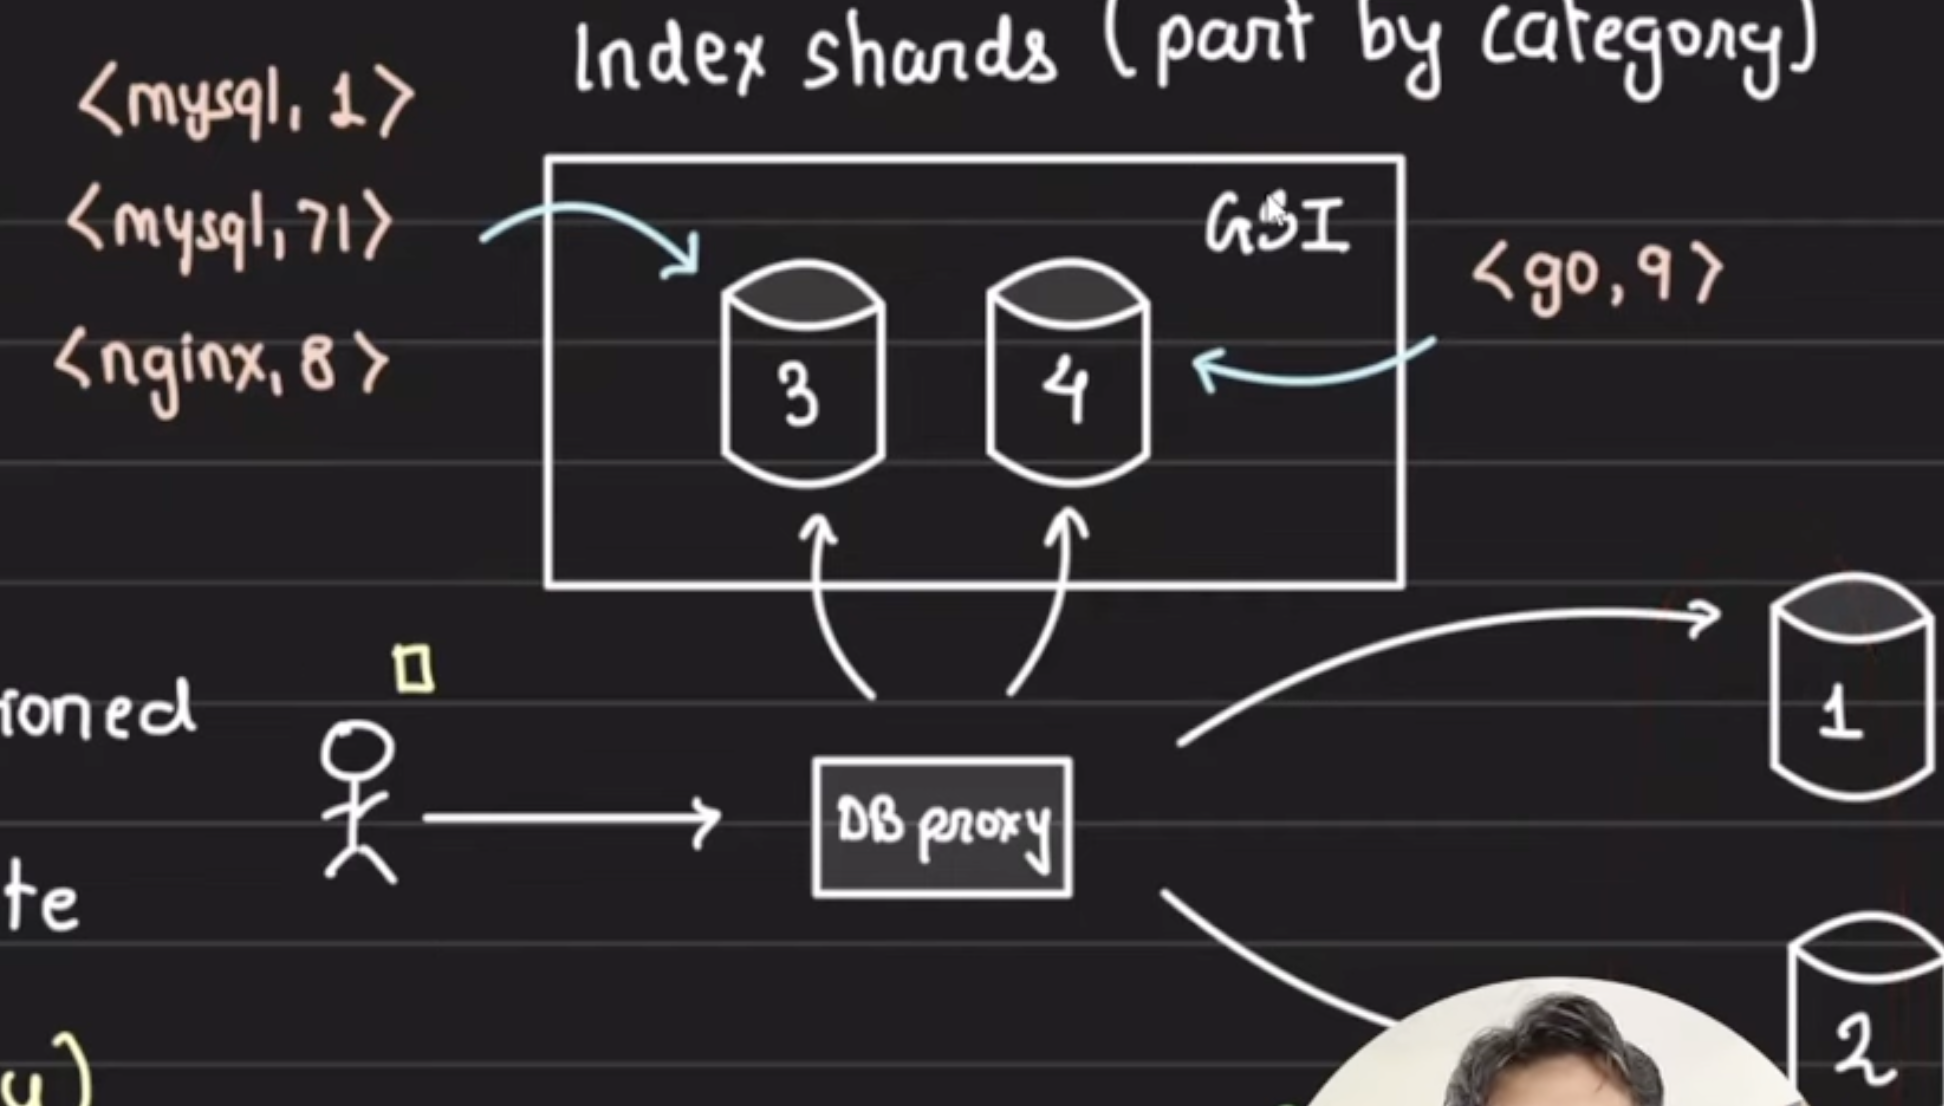 Index shards (part by category)
<mysql, 1>
<mysql, 71>
<nginx, 8>
GSI
<go, 9>
3
4
1
DB proxy
te
2